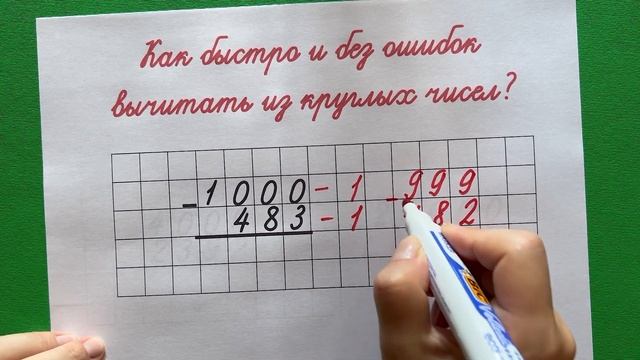 Как быстро и без ошибок
вычитать из круглых чисел?
- 1000 - 1 - 999
483 - 1 82
BIC